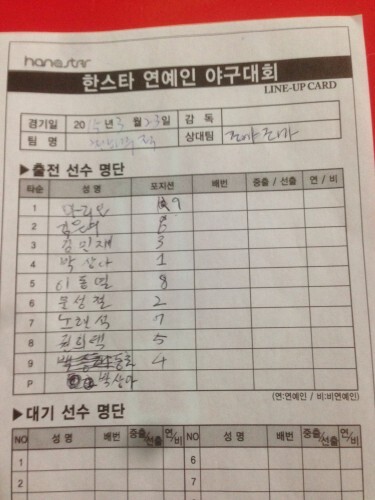 hanastar
한스타 연예인 야구대회
LINE-UP CARD
경기일 2015년 3월 23일 감 독
팀 명 상대팀 조마조마
▶출전 선수 명단
타순 성 명 포지션 배번 중출 / 선출 연 / 비
1 마리오 9
2 6
3 김민재 3
4 박상아 1
5 이동열 8
6 문성철 2
7 노현석 7
8 5
9 4
P 박상아
(연:연예인 / 비:비연예인)
▶대기 선수 명단
NO 성 명 배번 중출/선출 연/비 NO 성 명 배번 중출/선출 연/비
1 6
2 7
3 8